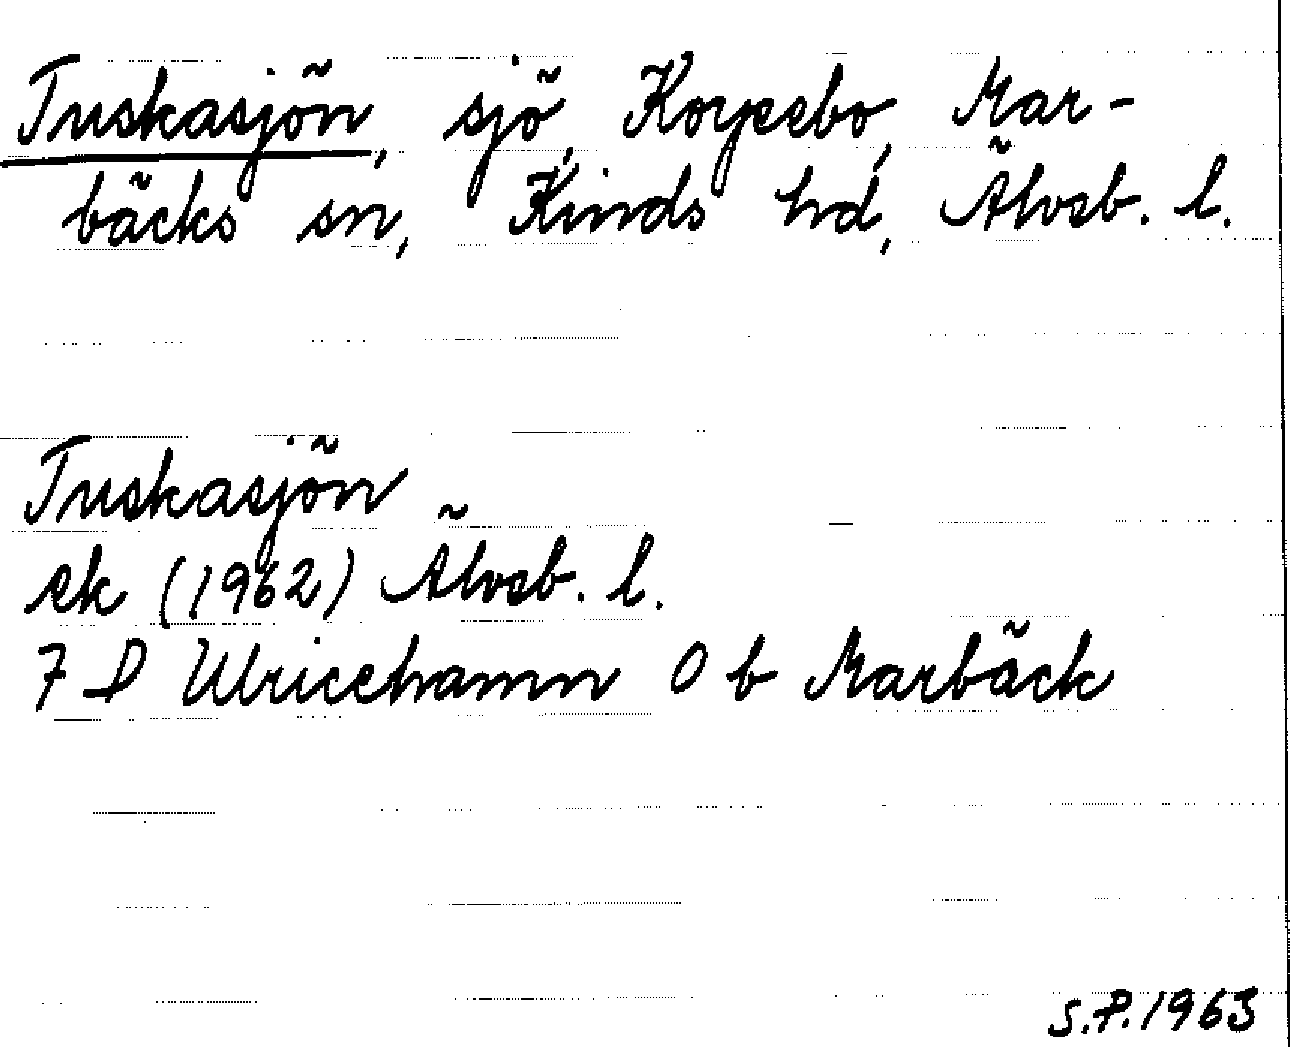 Tuskasjön, sjö, Korpebo, Mar-
bäcks sn, Kinds hd, Älvsb. l.
Tuskasjön
ek (1962) Älvsb. l.
7 D Ulricehamn 0 b Marbäck
S.P. 1963